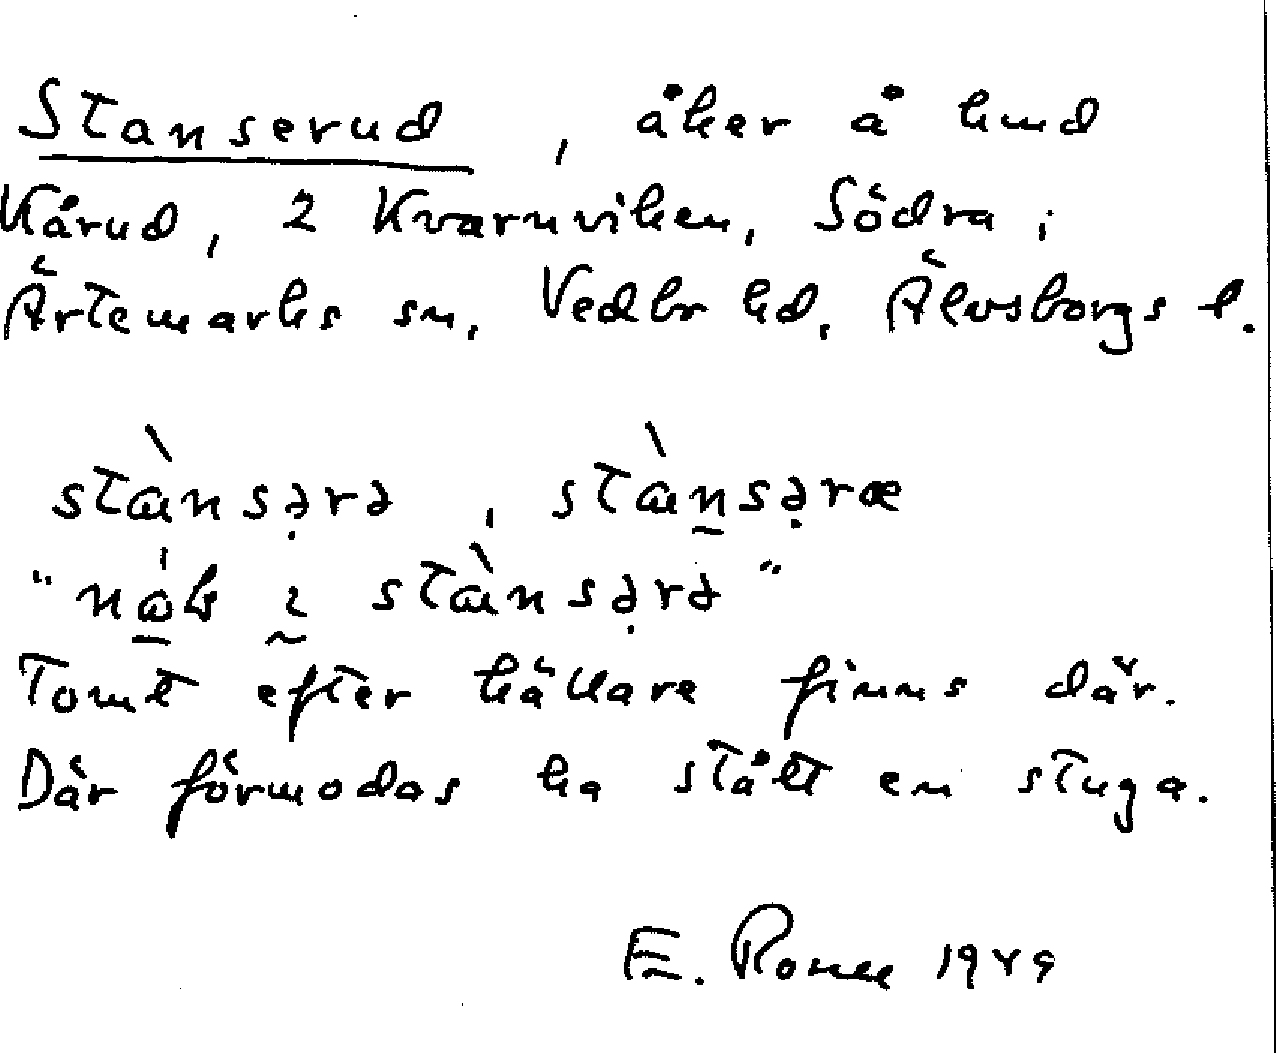 Stanserud, åker å hmd
Kårud, 2 Kvarnviken, Södra i
Ärtemarks sn, Vedbo hd, Älvsborgs l.
stànsə̣rə, stàn̰sə̣ræ
"nɷ́k ı̰ stànsə̣rə"
Tomt efter källare finns där.
Där förmodas ha stått en stuga.
E. 1949